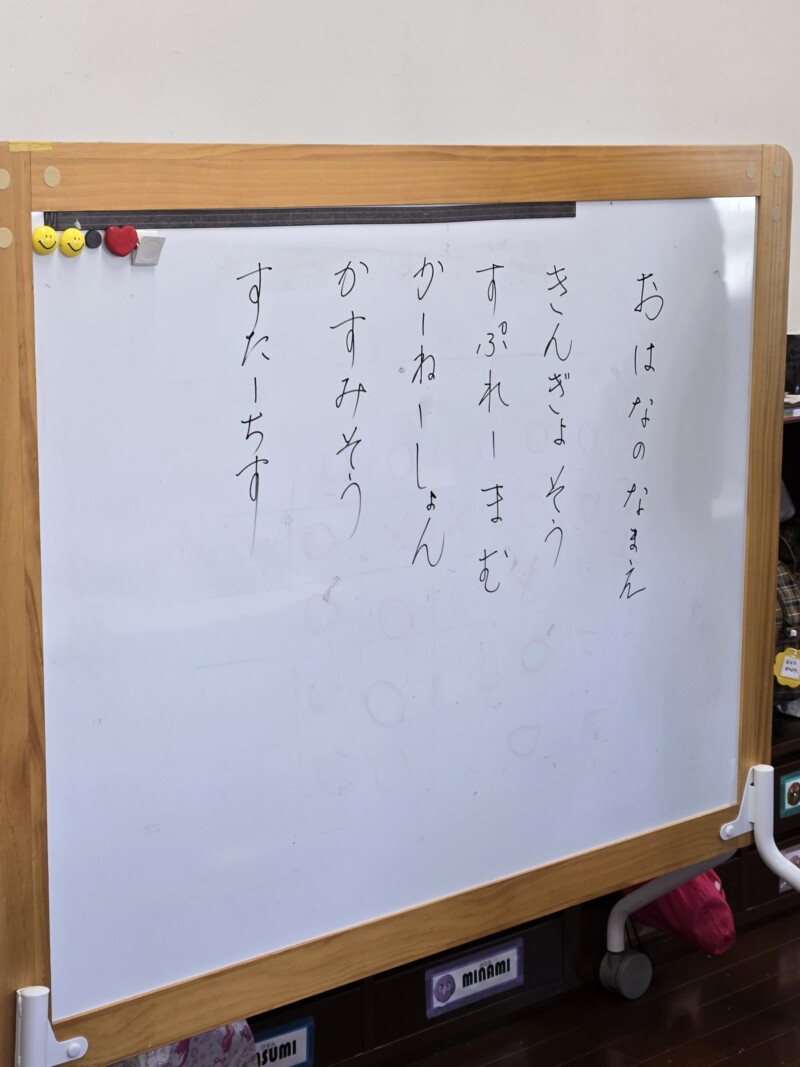 おはなのなまえ
きんぎょそう
すぷれーまむ
かーねーしょん
かすみそう
すたーちす
MINAMI
ASUMI